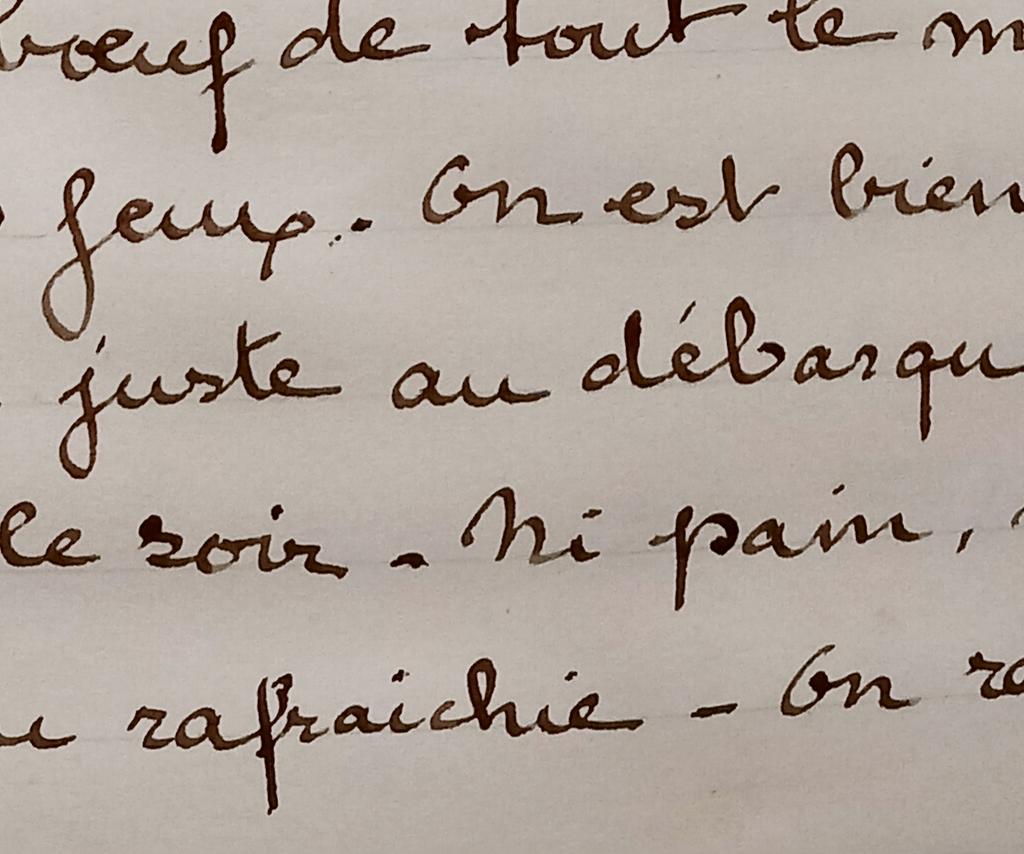 bœuf de tout le m
feux. On est bien
juste au débarqu
le soir - Ni pain,
rafraichie - On re